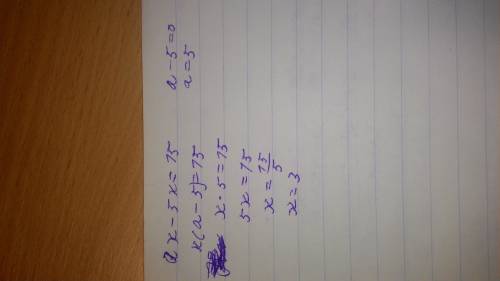 ax - 5x = 15
x(a - 5) = 15
x · 5 = 15
5x = 15
x = 15/5
x = 3
a - 5 = 0
a = 5